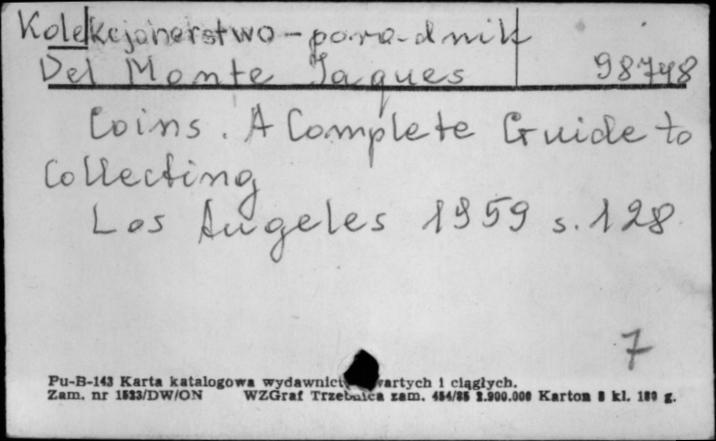 Kolekcjonerstwo - poradnik
Del Monte Jaques 98748
Coins. A Complete Guide to
Collecting
Los Angeles 1959 s. 128
7
Pu-B-143 Karta katalogowa wydawnictw zwartych i ciągłych.
Zam. nr 1523/DW/ON WZGraf Trzebnica zam. 454/85 2.900.000 Karton 8 kl. 180 g.